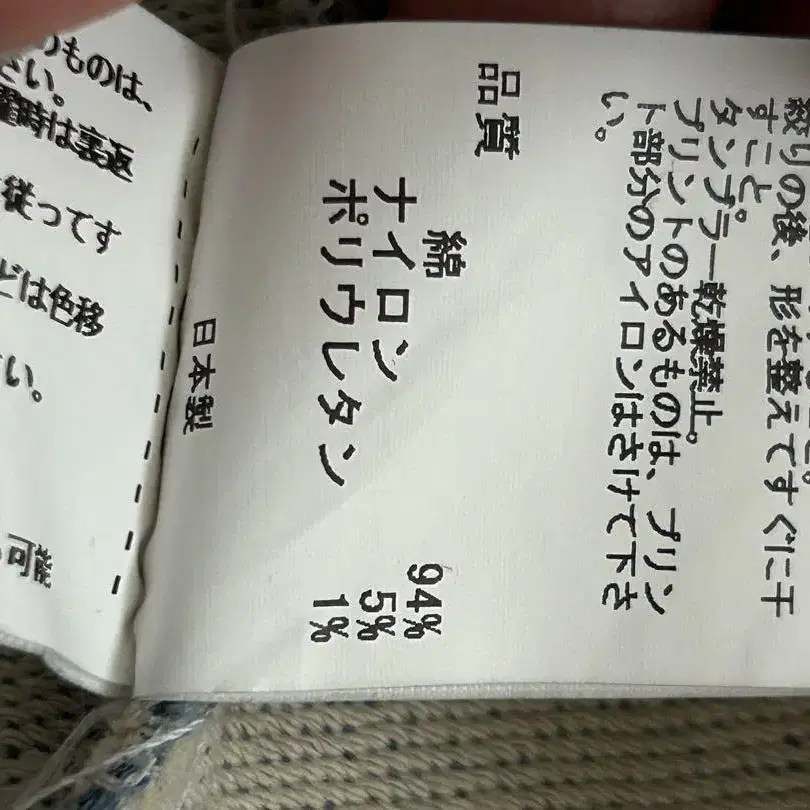 絞りの後、形を整えてすぐに干
すこと
タンブラー乾燥禁止。
プリントのあるものは、プリン
ト部分のアイロンはさけて下さ
い。
品質
綿 94%
ナイロン 5%
ポリウレタン 1%
日本製
のものは、
さい。
時は裏返
従ってす
どは色移
い。
可能